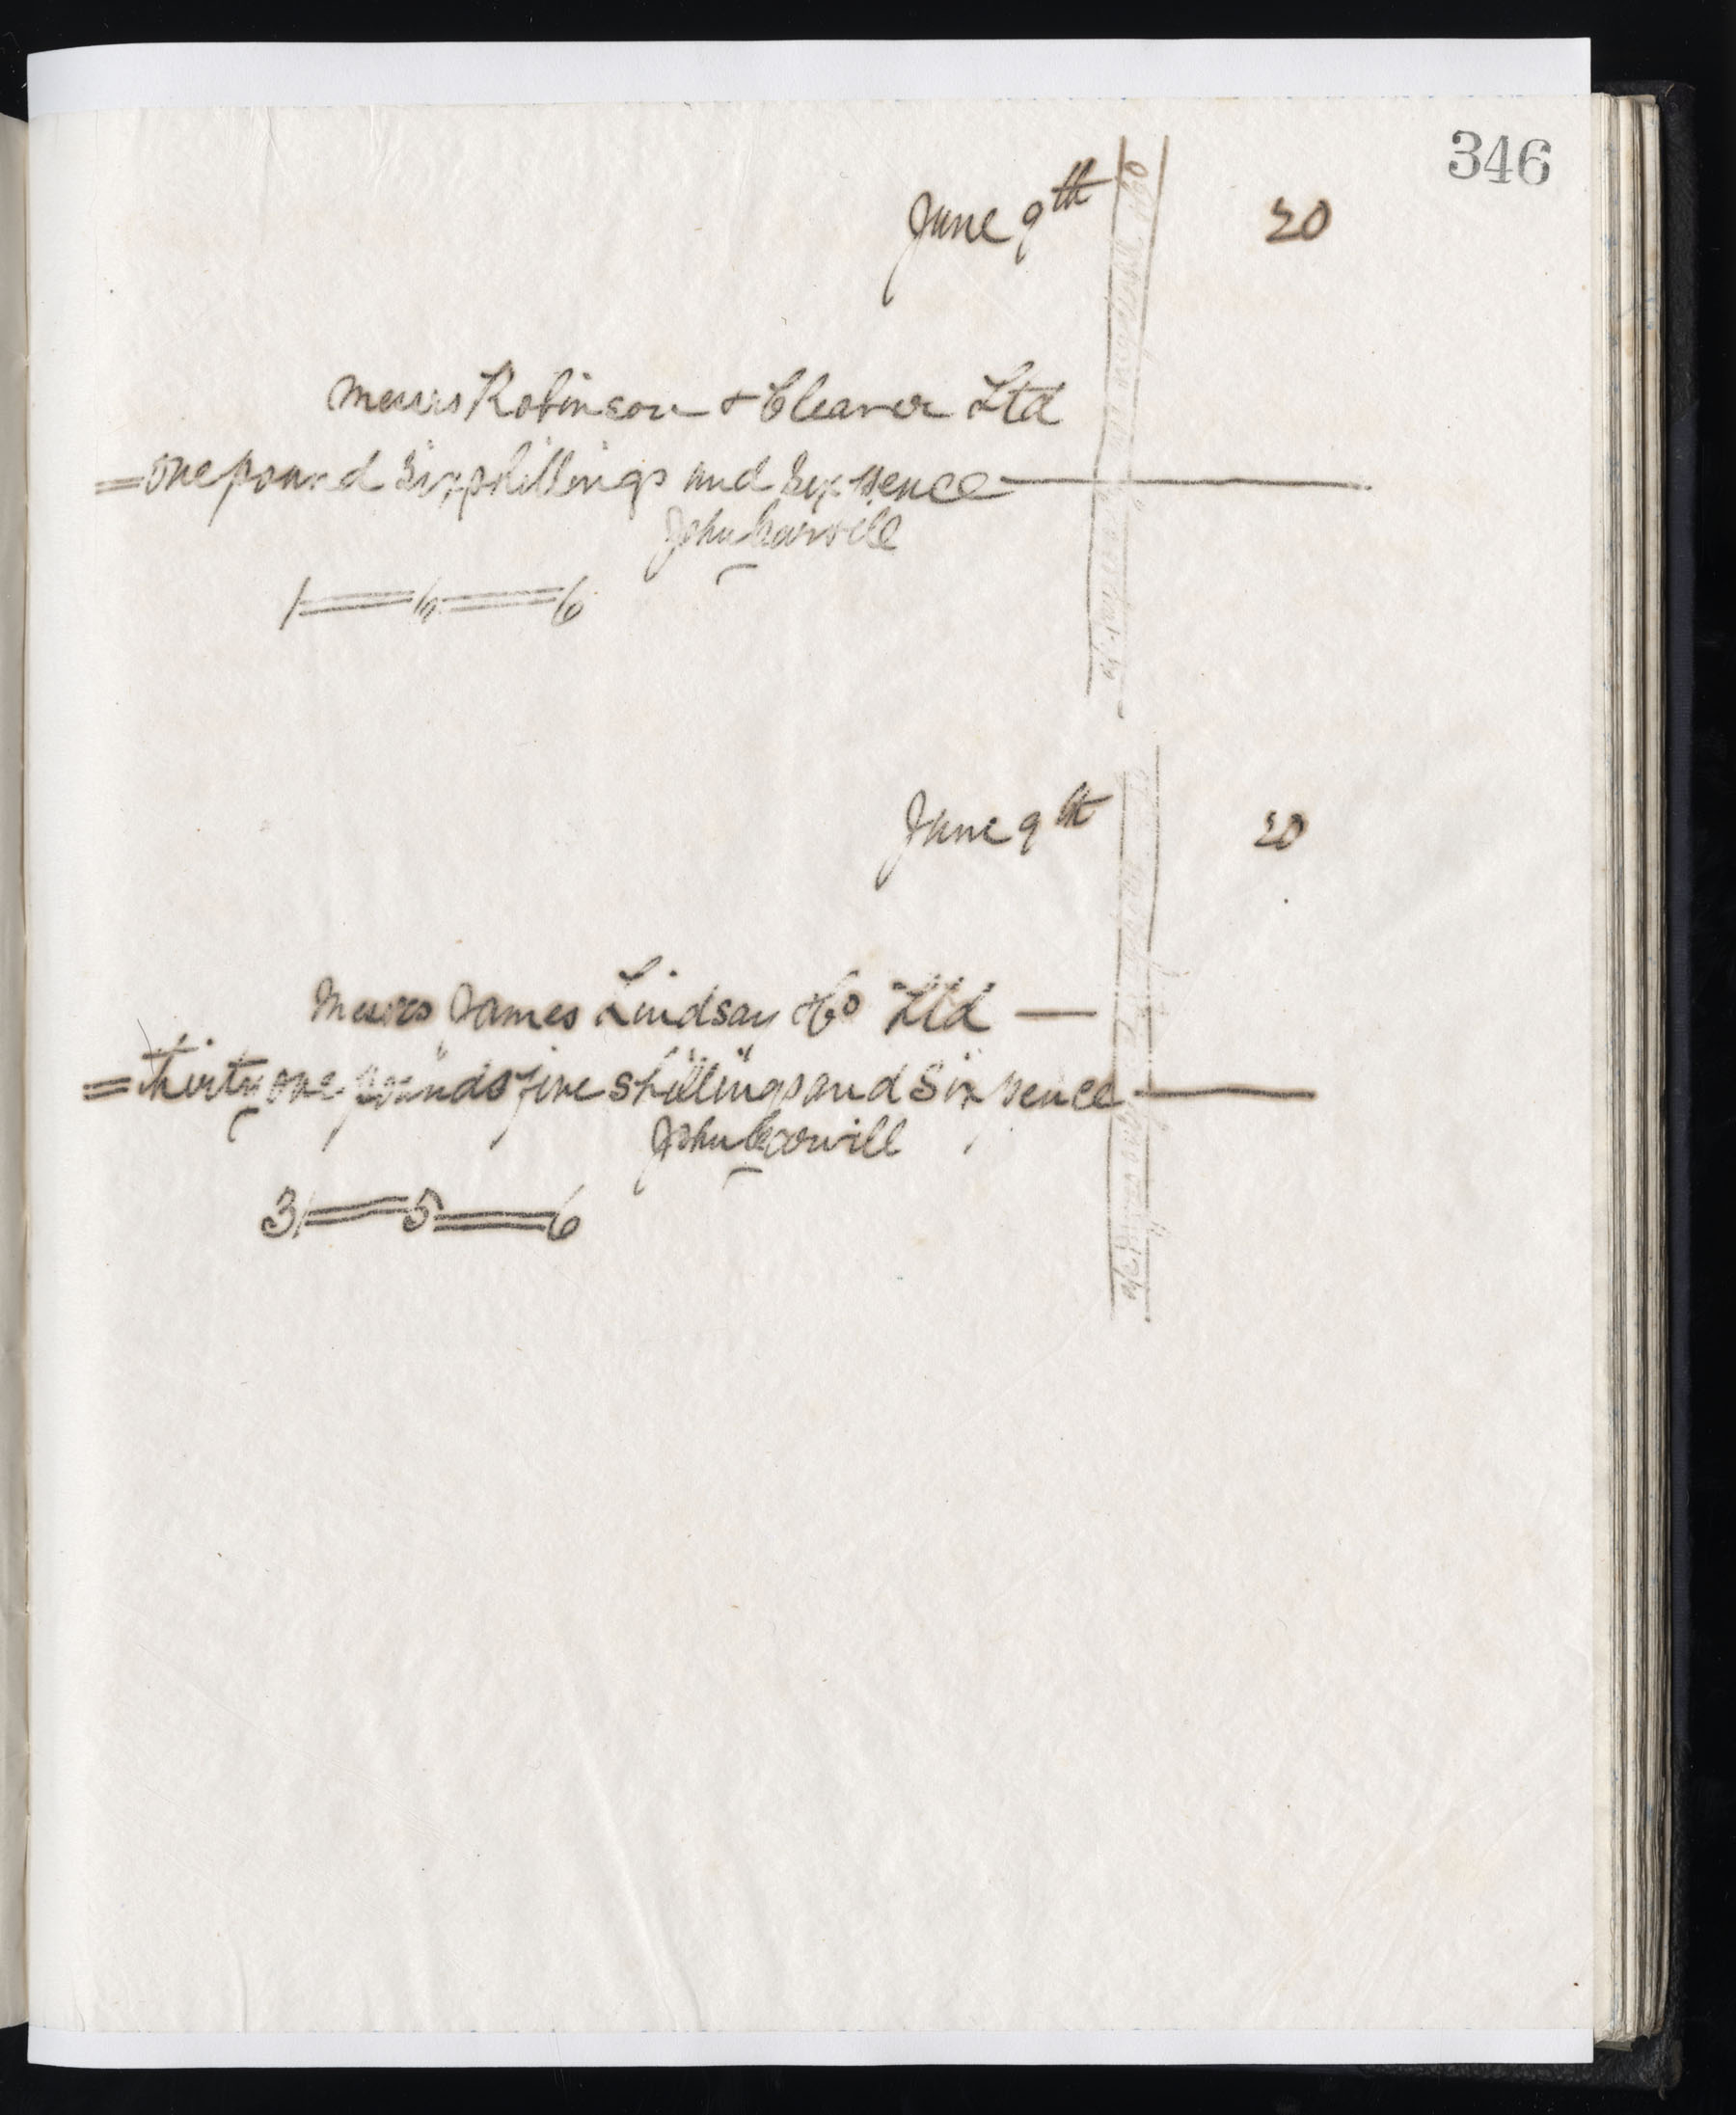 346
June 9th 20
Messrs Robinson & Cleaver Ltd
= one pound six shillings and six pence —
John Carvill
1 == 6 == 6
June 9th 20
Messrs James Lindsay & Co Ltd —
= thirty one pounds five shillings and six pence —
John Carvill
31 == 5 == 6